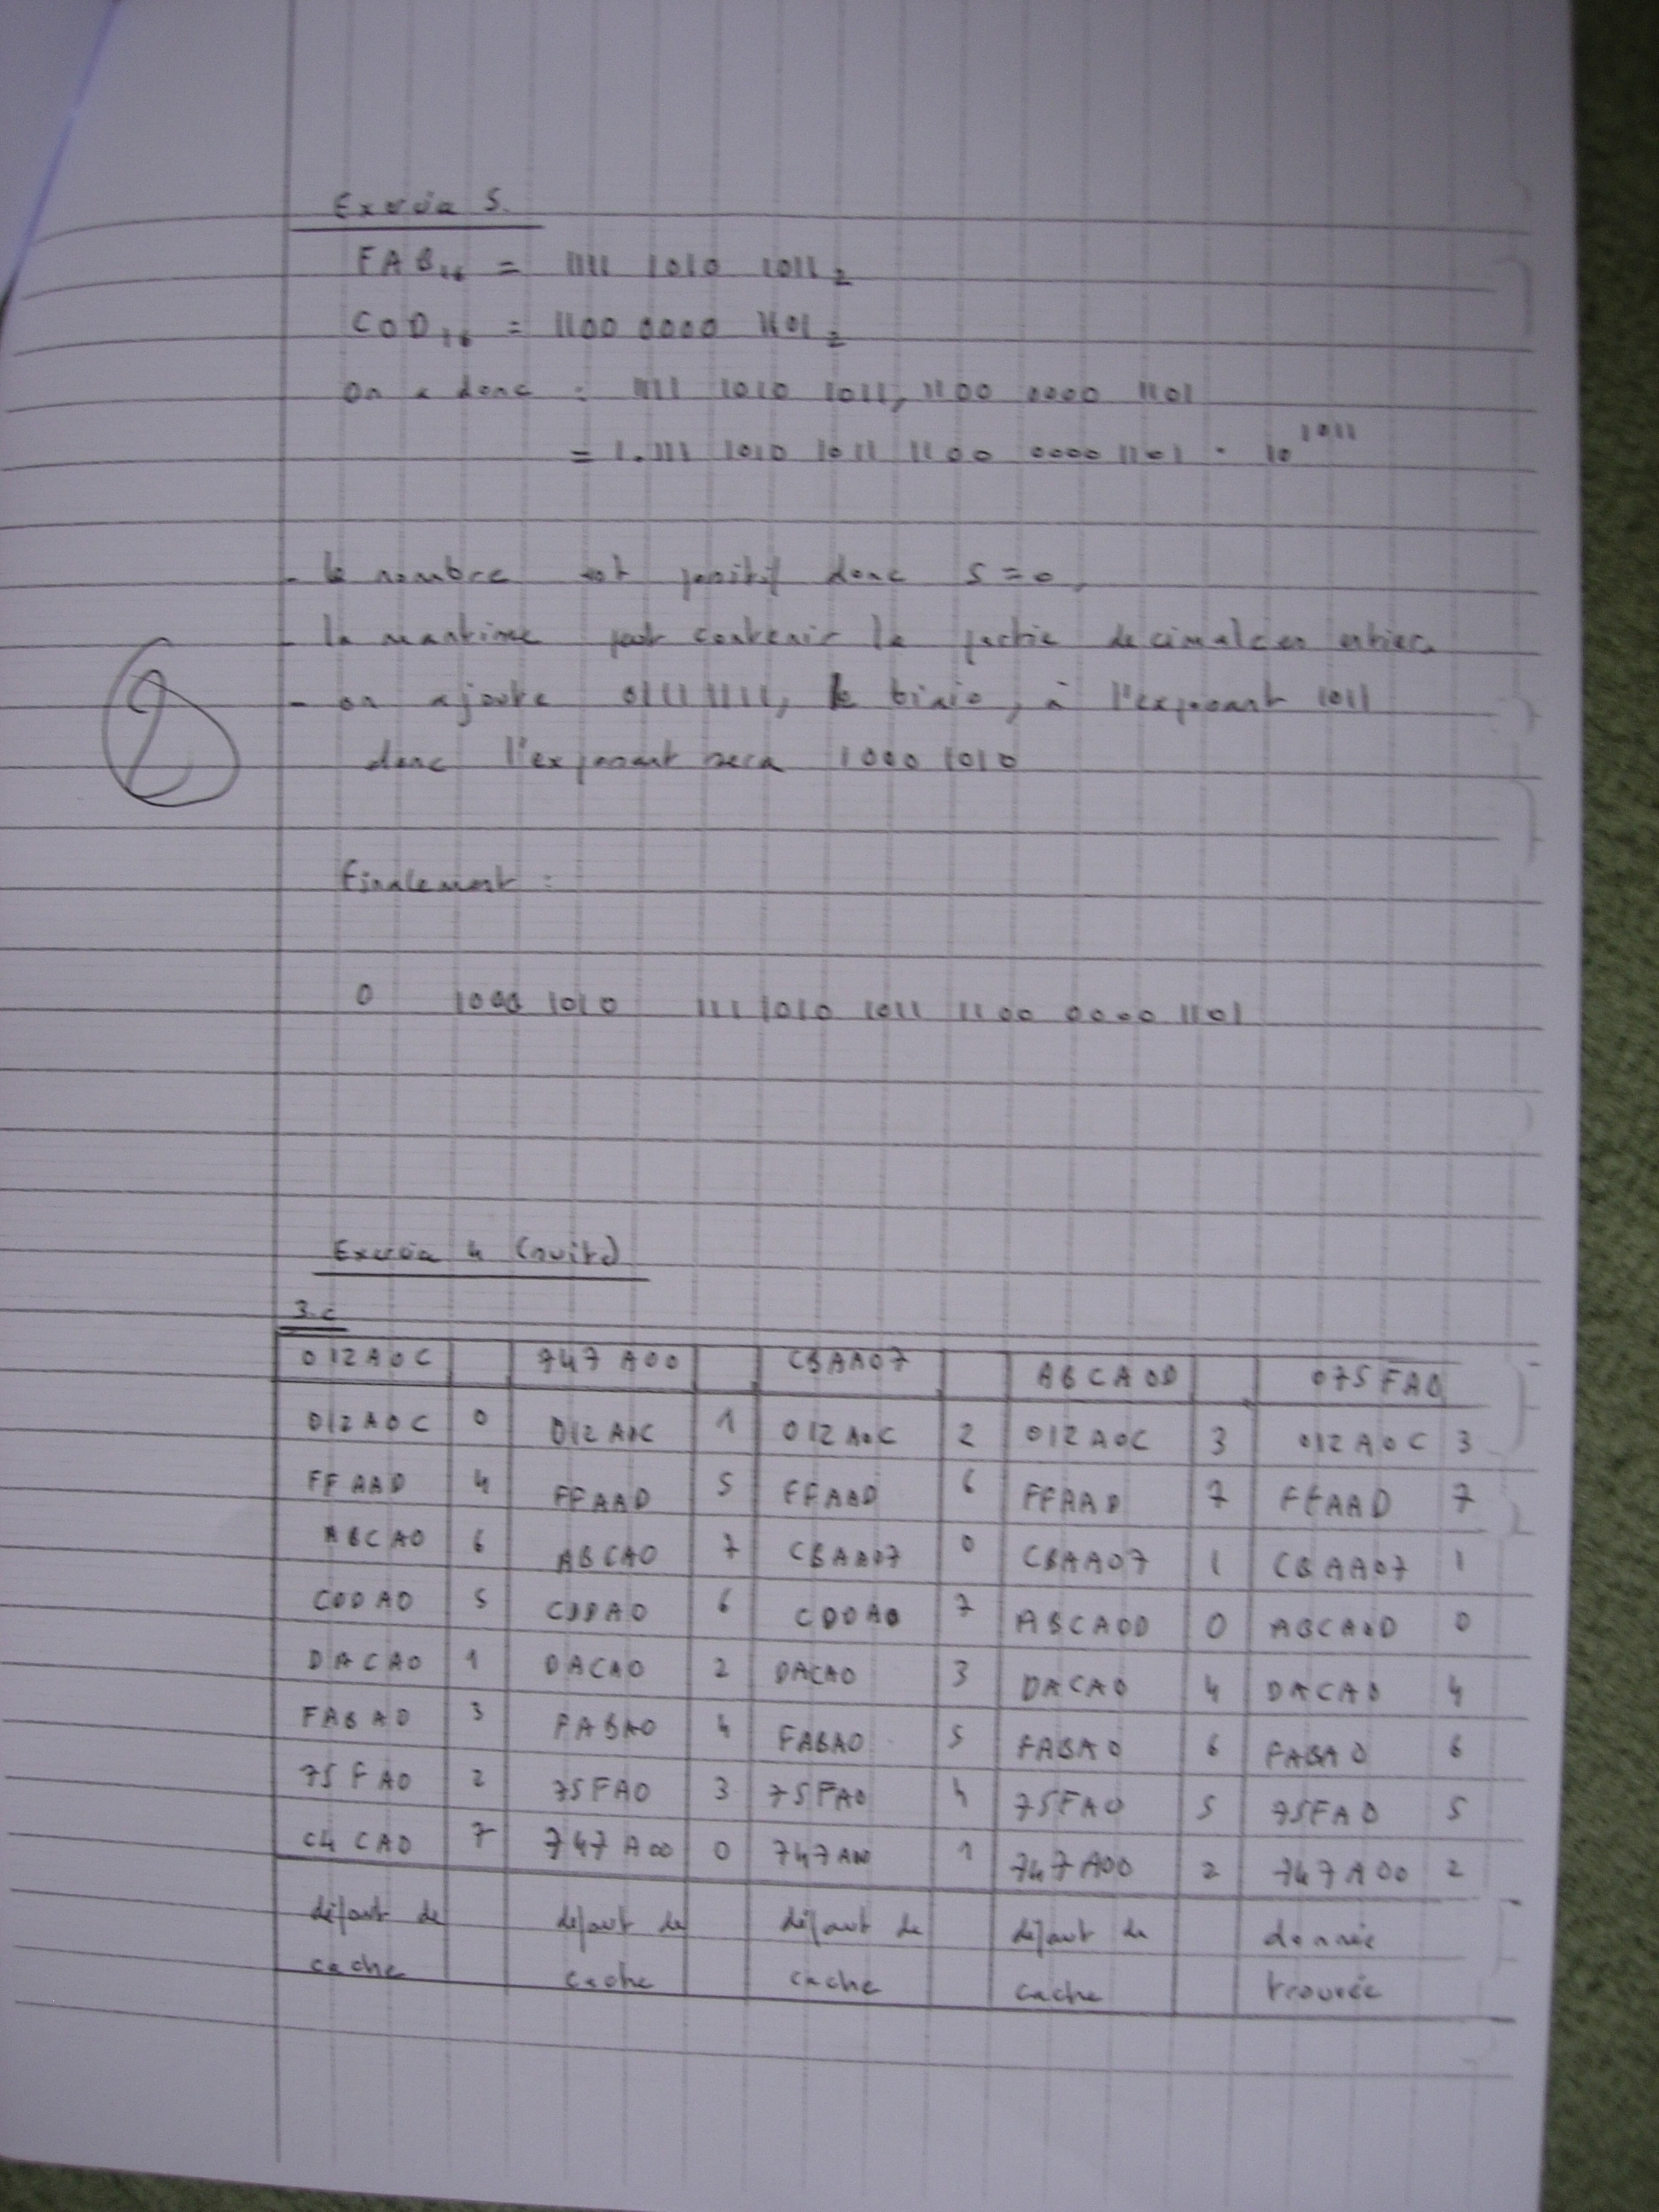 Exercice 5.
FAB16 = 1111 1010 1011 2
C0D16 = 1100 0000 1101 2
on a donc : 1111 1010 1011, 1100 0000 1101
= 1.111 1010 1011 1100 0000 1101 · 10^1011
- le nombre est positif donc S = 0,
- la mantisse peut contenir la partie decimale en entier.
- on ajoute 01111111, le biais, à l'exposant 1011
donc l'exposant sera 1000 1010
2
Finalement :
0 1000 1010 111 1010 1011 1100 0000 1101
Exercice 4 (suite)
3.c
012A0C 747A00 CBAA07 ABCA0D 075FA0
012A0C 0 012A0C 1 012A0C 2 012A0C 3 012A0C 3
FFAAD 4 FFAAD 5 FFAAD 6 FFAAD 7 FFAAD 7
ABCA0 6 ABCA0 7 CBAA07 0 CBAA07 1 CBAA07 1
C0DA0 5 C0DA0 6 C0DA0 7 ABCA0D 0 ABCA0D 0
DACA0 1 DACA0 2 DACA0 3 DACA0 4 DACA0 4
FABA0 3 FABA0 4 FABA0 5 FABA0 6 FABA0 6
75FA0 2 75FA0 3 75FA0 4 75FA0 5 75FA0 5
C4CA0 7 747A00 0 747A00 1 747A00 2 747A00 2
défaut de défaut de défaut de défaut de donnée
cache cache cache cache trouvée